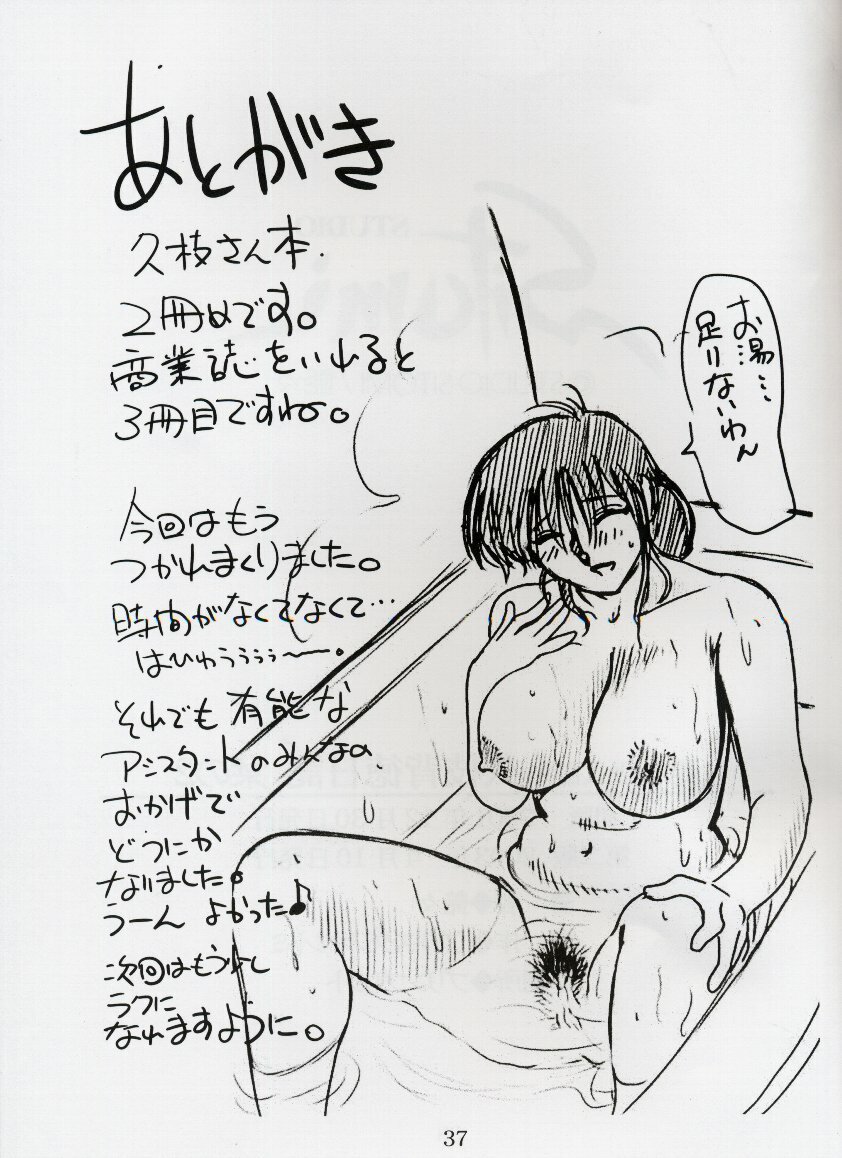 あとがき
久枝さん本.
2冊めです。
商業誌をいれると
3冊目ですね。
今回はもう
つかれまくりました。
時間がなくてなくて…
はひゅうぅぅぅ〜。
それでも有能な
アシスタントのみんなの
おかげで
どうにか
なりました。
うーん よかった♪
次回はもう少し
ラクに
なれますように。
お湯…
足りないわん
37